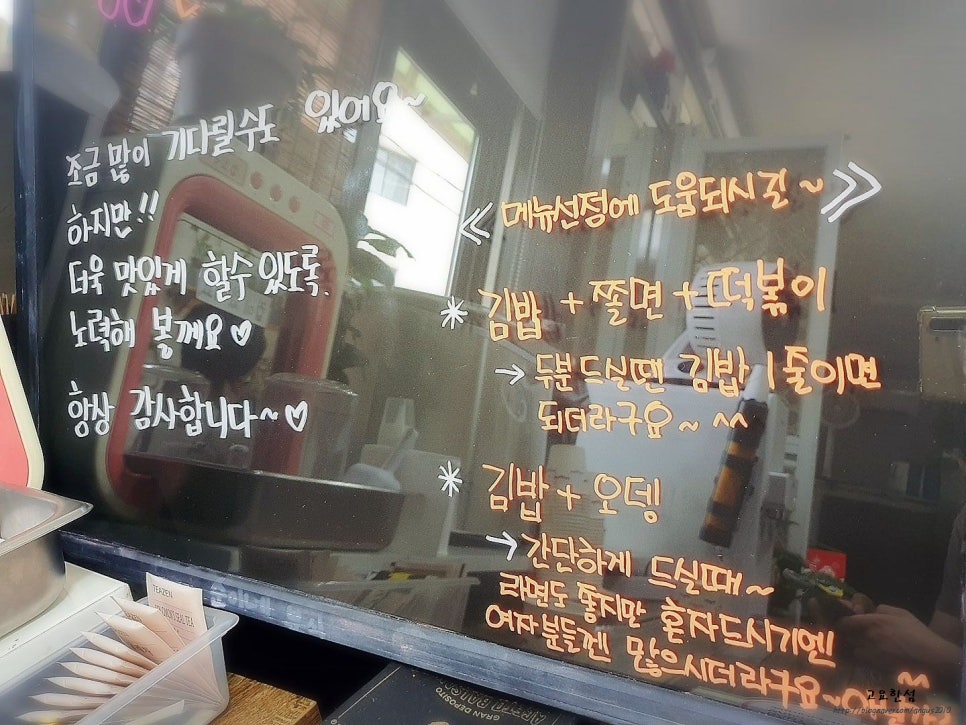 조금 많이 기다릴수도 있어요~
하지만!!
더욱 맛있게 할수 있도록.
노력해 볼께요♡
항상 감사합니다~♡
《 메뉴선정에 도움되시길~ 》
* 김밥 + 쫄면 + 떡볶이
→ 두분 드실땐 김밥 1줄이면
되더라구요~ ^^
* 김밥 + 오뎅
→ 간단하게 드실때~
라면도 좋지만 혼자드시기엔
여자분들껜 많으시더라구요~
TEAZEN
고요한섬